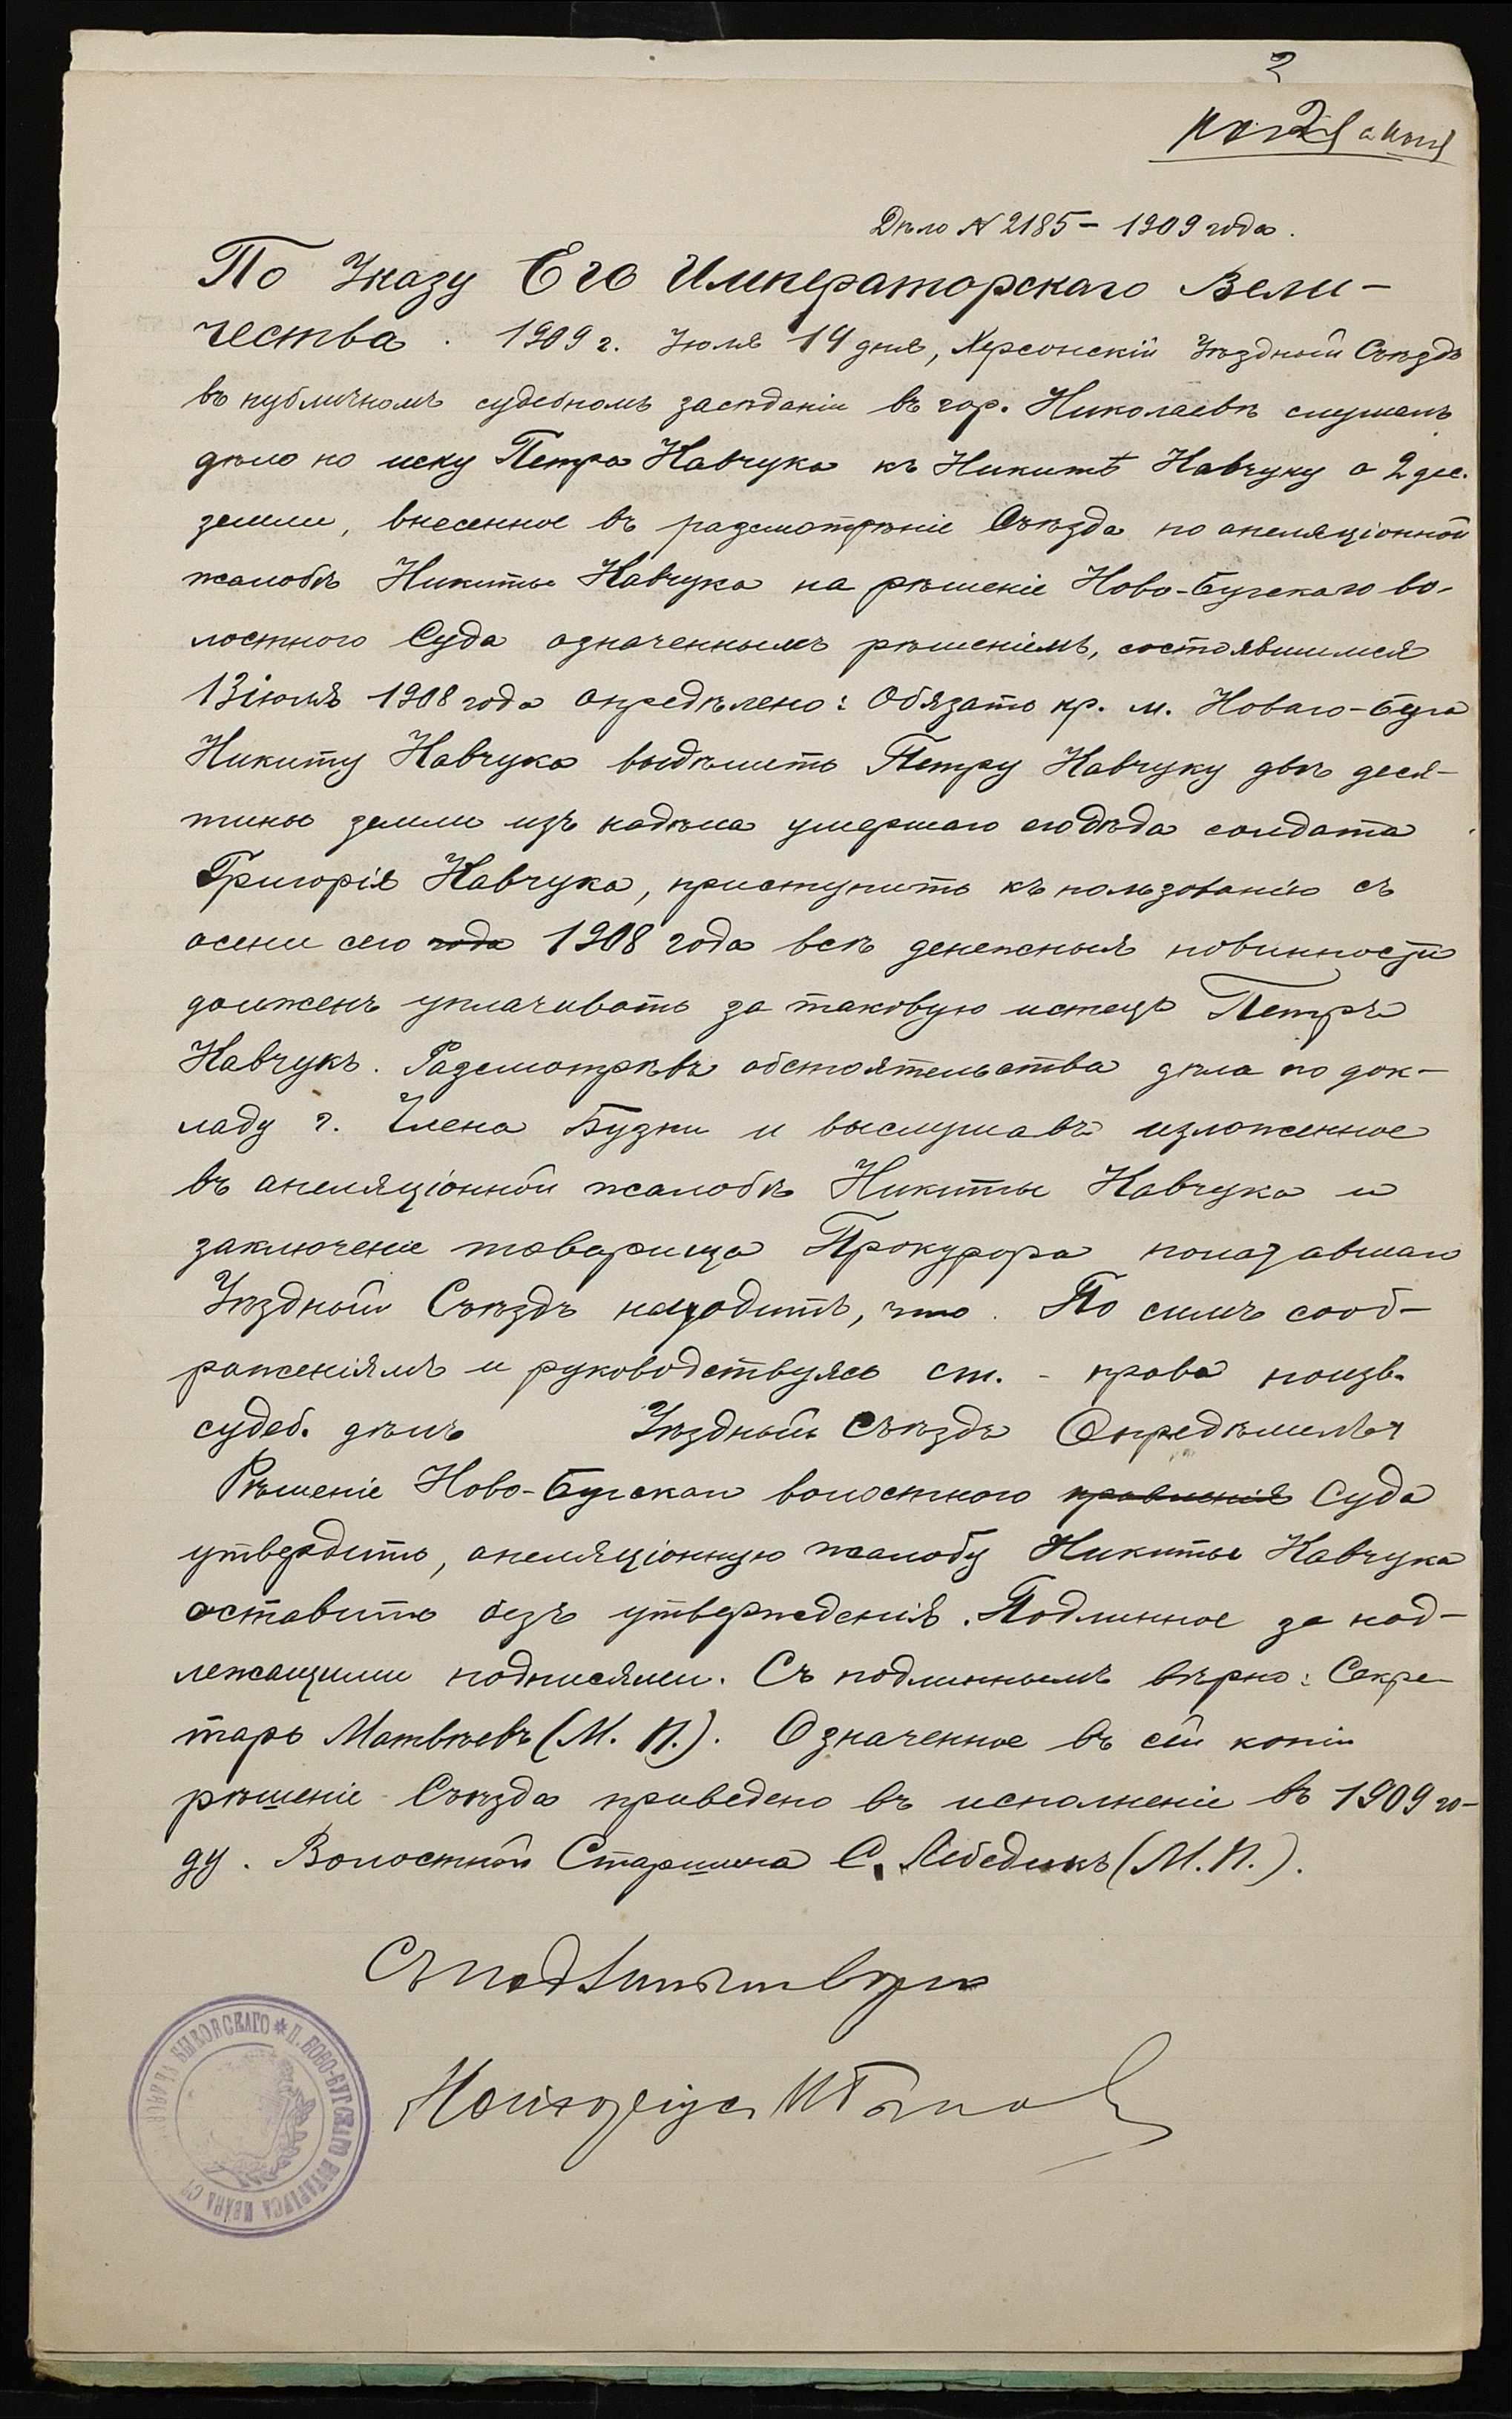 2
Дѣло № 2185 – 1909 года.
По Указу Его Императорскаго Вели-
чества. 1909 г. Іюля 14 дня, Херсонскій Уѣздный Съѣздъ
въ публичномъ судебномъ засѣданіи въ гор. Николаевѣ слушалъ
дѣло по иску Петра Навчука къ Никитѣ Навчуку о 2 дес.
земли, внесенное въ разсмотрѣніе Съѣзда по апеляціонной
жалобѣ Никиты Навчука на рѣшеніе Ново-Бугскаго во-
лостного Суда означеннымъ рѣшеніемъ, состоявшимся
13 іюля 1908 года опредѣлено: Обязать кр. м. Новаго-Буга
Никиту Навчука выдѣлить Петру Навчуку двѣ деся-
тины земли изъ надѣла умершаго его дѣда солдата
Григорія Навчука, приступить къ пользованію съ
осени сего года 1908 года всѣ денежныя повинности
долженъ уплачивать за таковую истецъ Петръ
Навчукъ. Разсмотрѣвъ обстоятельства дѣла по док-
ладу г. Члена Бузни и выслушавъ изложенное
въ апеляціонной жалобѣ Никиты Навчука и
заключеніе товарища Прокурора полагавшаго
Уѣздный Съѣздъ находитъ, что. По симъ сооб-
раженіямъ и руководствуясь ст. - права произв.
судеб. дѣлъ Уѣздный Съѣздъ Опредѣлилъ:
Рѣшеніе Ново-Бугскаго волостного правленія Суда
утвердить, апеляціонную жалобу Никиты Навчука
оставить безъ утвержденія. Подлинное за над-
лежащими подписями. Съ подлиннымъ вѣрно: Секре-
тарь Матвѣевъ (М. П.). Означенное въ сей копіи
рѣшеніе Съѣзда приведено въ исполненіе въ 1909 го-
ду. Волостной Старшина С. Лебедикъ (М. П.).
Съ подлиннымъ вѣрно
БЫКОВСКАГО * П. НОВО-БУГСКАГО НОТАРІУСА ИВАНА